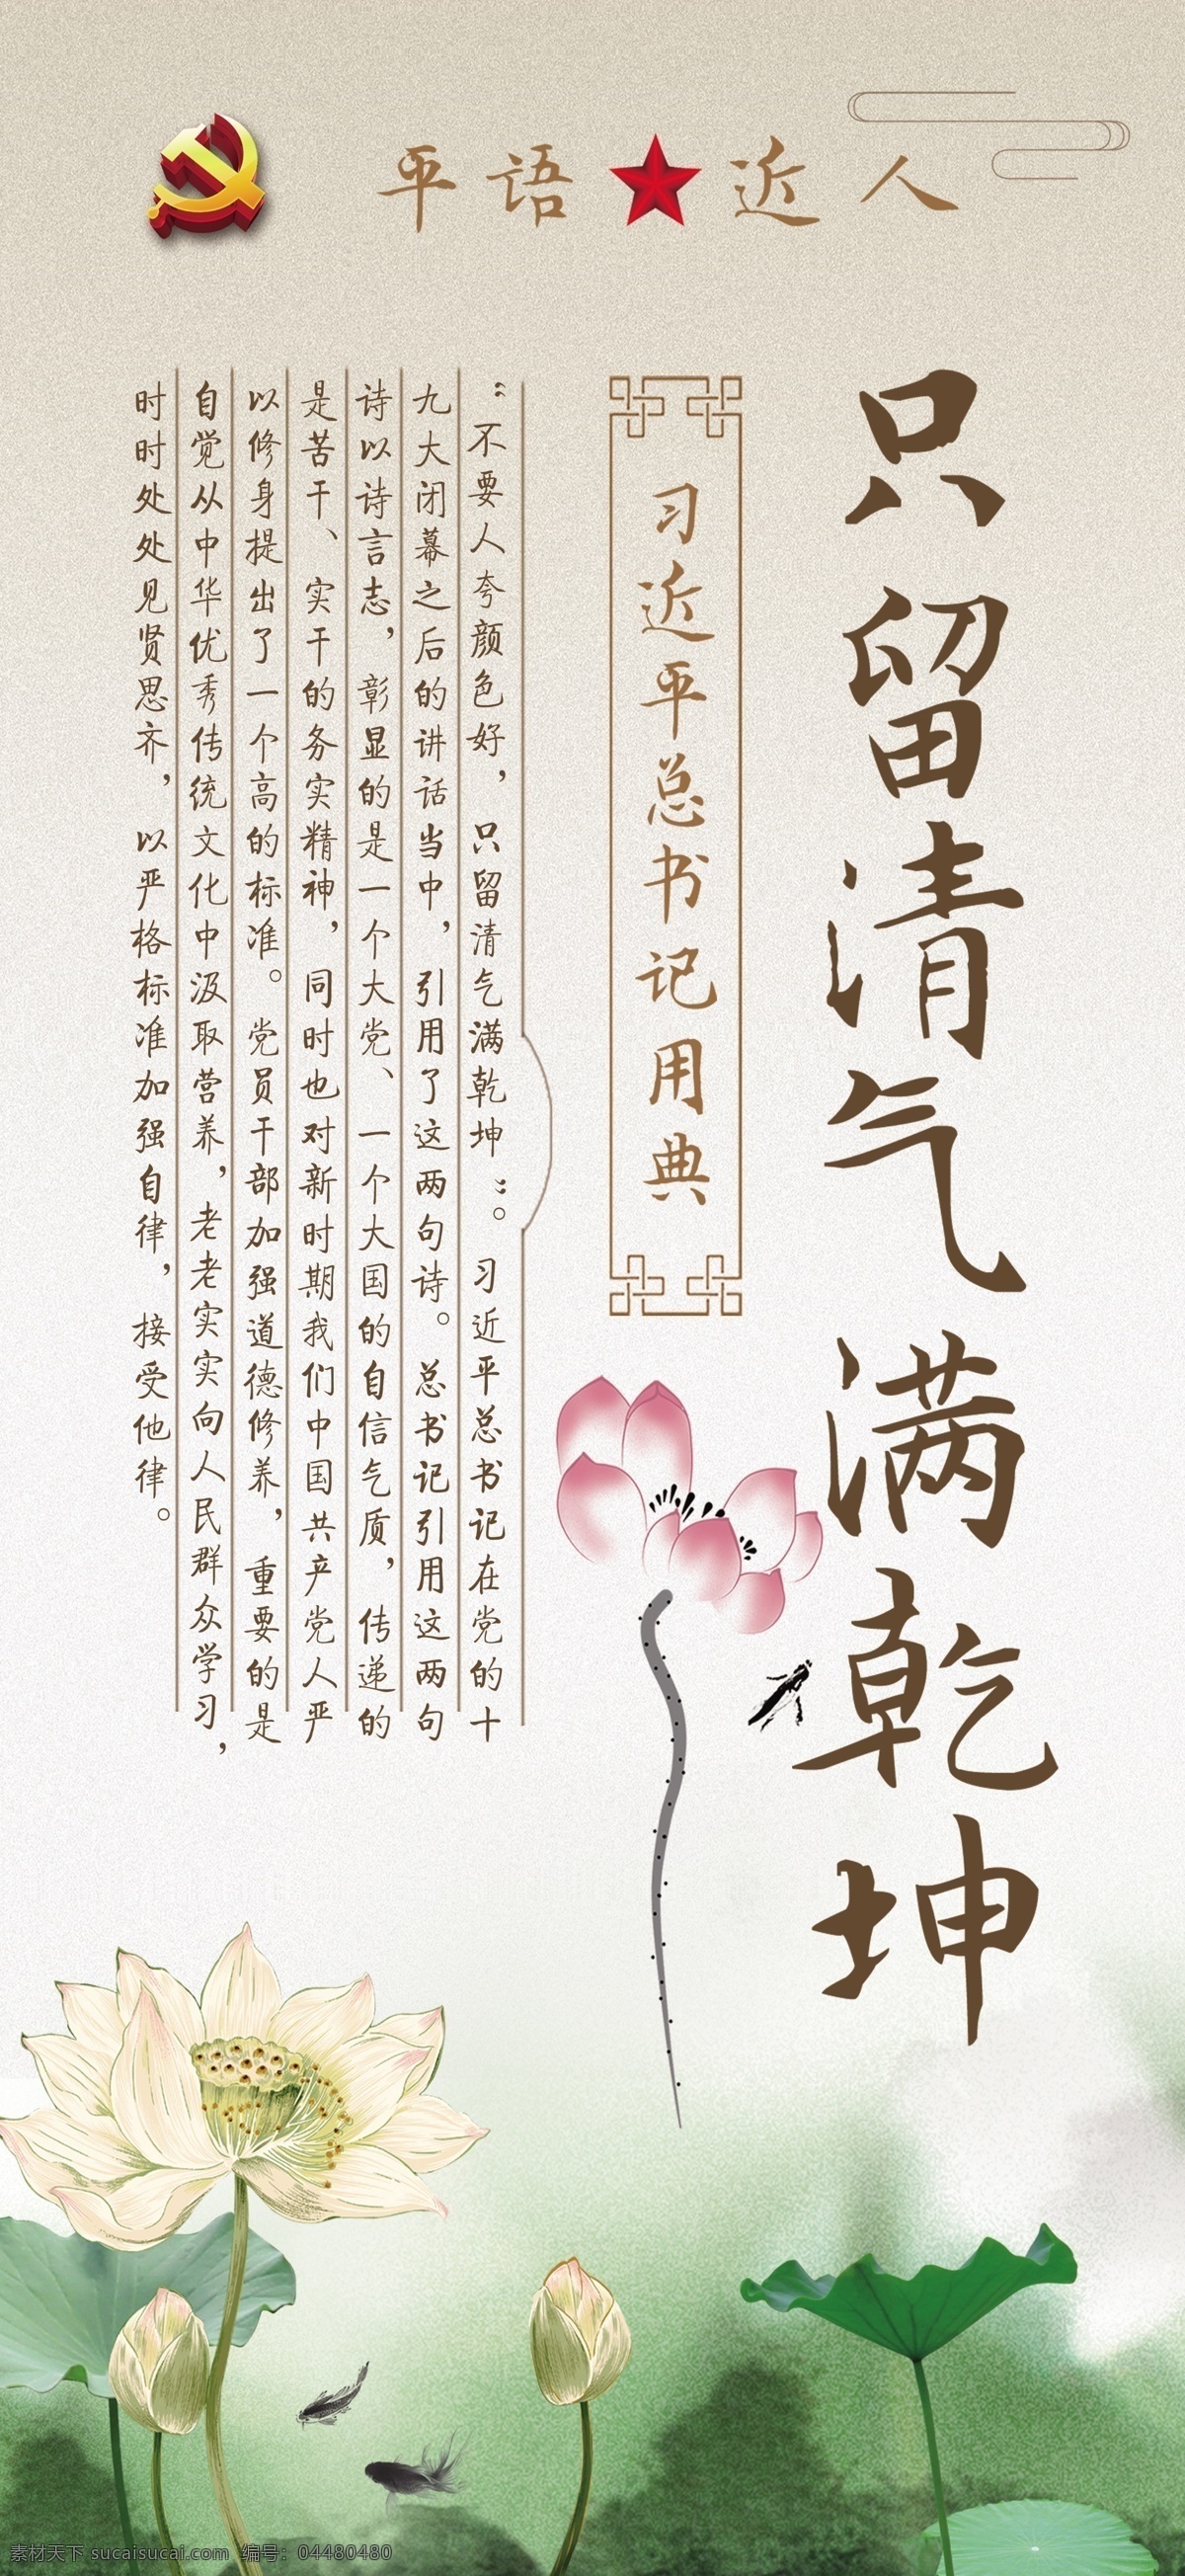 平语近人
只留清气满乾坤
习近平总书记用典
“不要人夸颜色好，只留清气满乾坤”。习近平总书记在党的十
九大闭幕之后的讲话当中，引用了这两句诗。总书记引用这两句
诗以诗言志，彰显的是一个大党、一个大国的自信气质，传递的
是苦干、实干的务实精神，同时也对新时期我们中国共产党人严
以修身提出了一个高的标准。党员干部加强道德修养，重要的是
自觉从中华优秀传统文化中汲取营养，老老实实向人民群众学习，
时时处处见贤思齐，以严格标准加强自律，接受他律。
素材天下 sucaisucai.com 编号：04480480